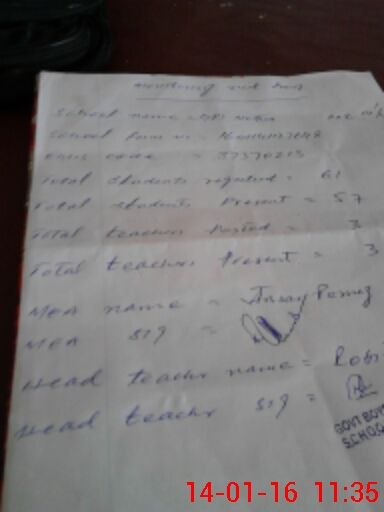 monitoring visit form
School name
School form no =
EMIS code = 37370213
Total students registered = 61
Total students Present = 57
Total teachers Posted = 3
Total teachers Present = 3
MEA name = Pervez
MEA sig =
Head teacher name = Robi
Head teacher sig =
GOVT BOY
SCHOO
14-01-16 11:35